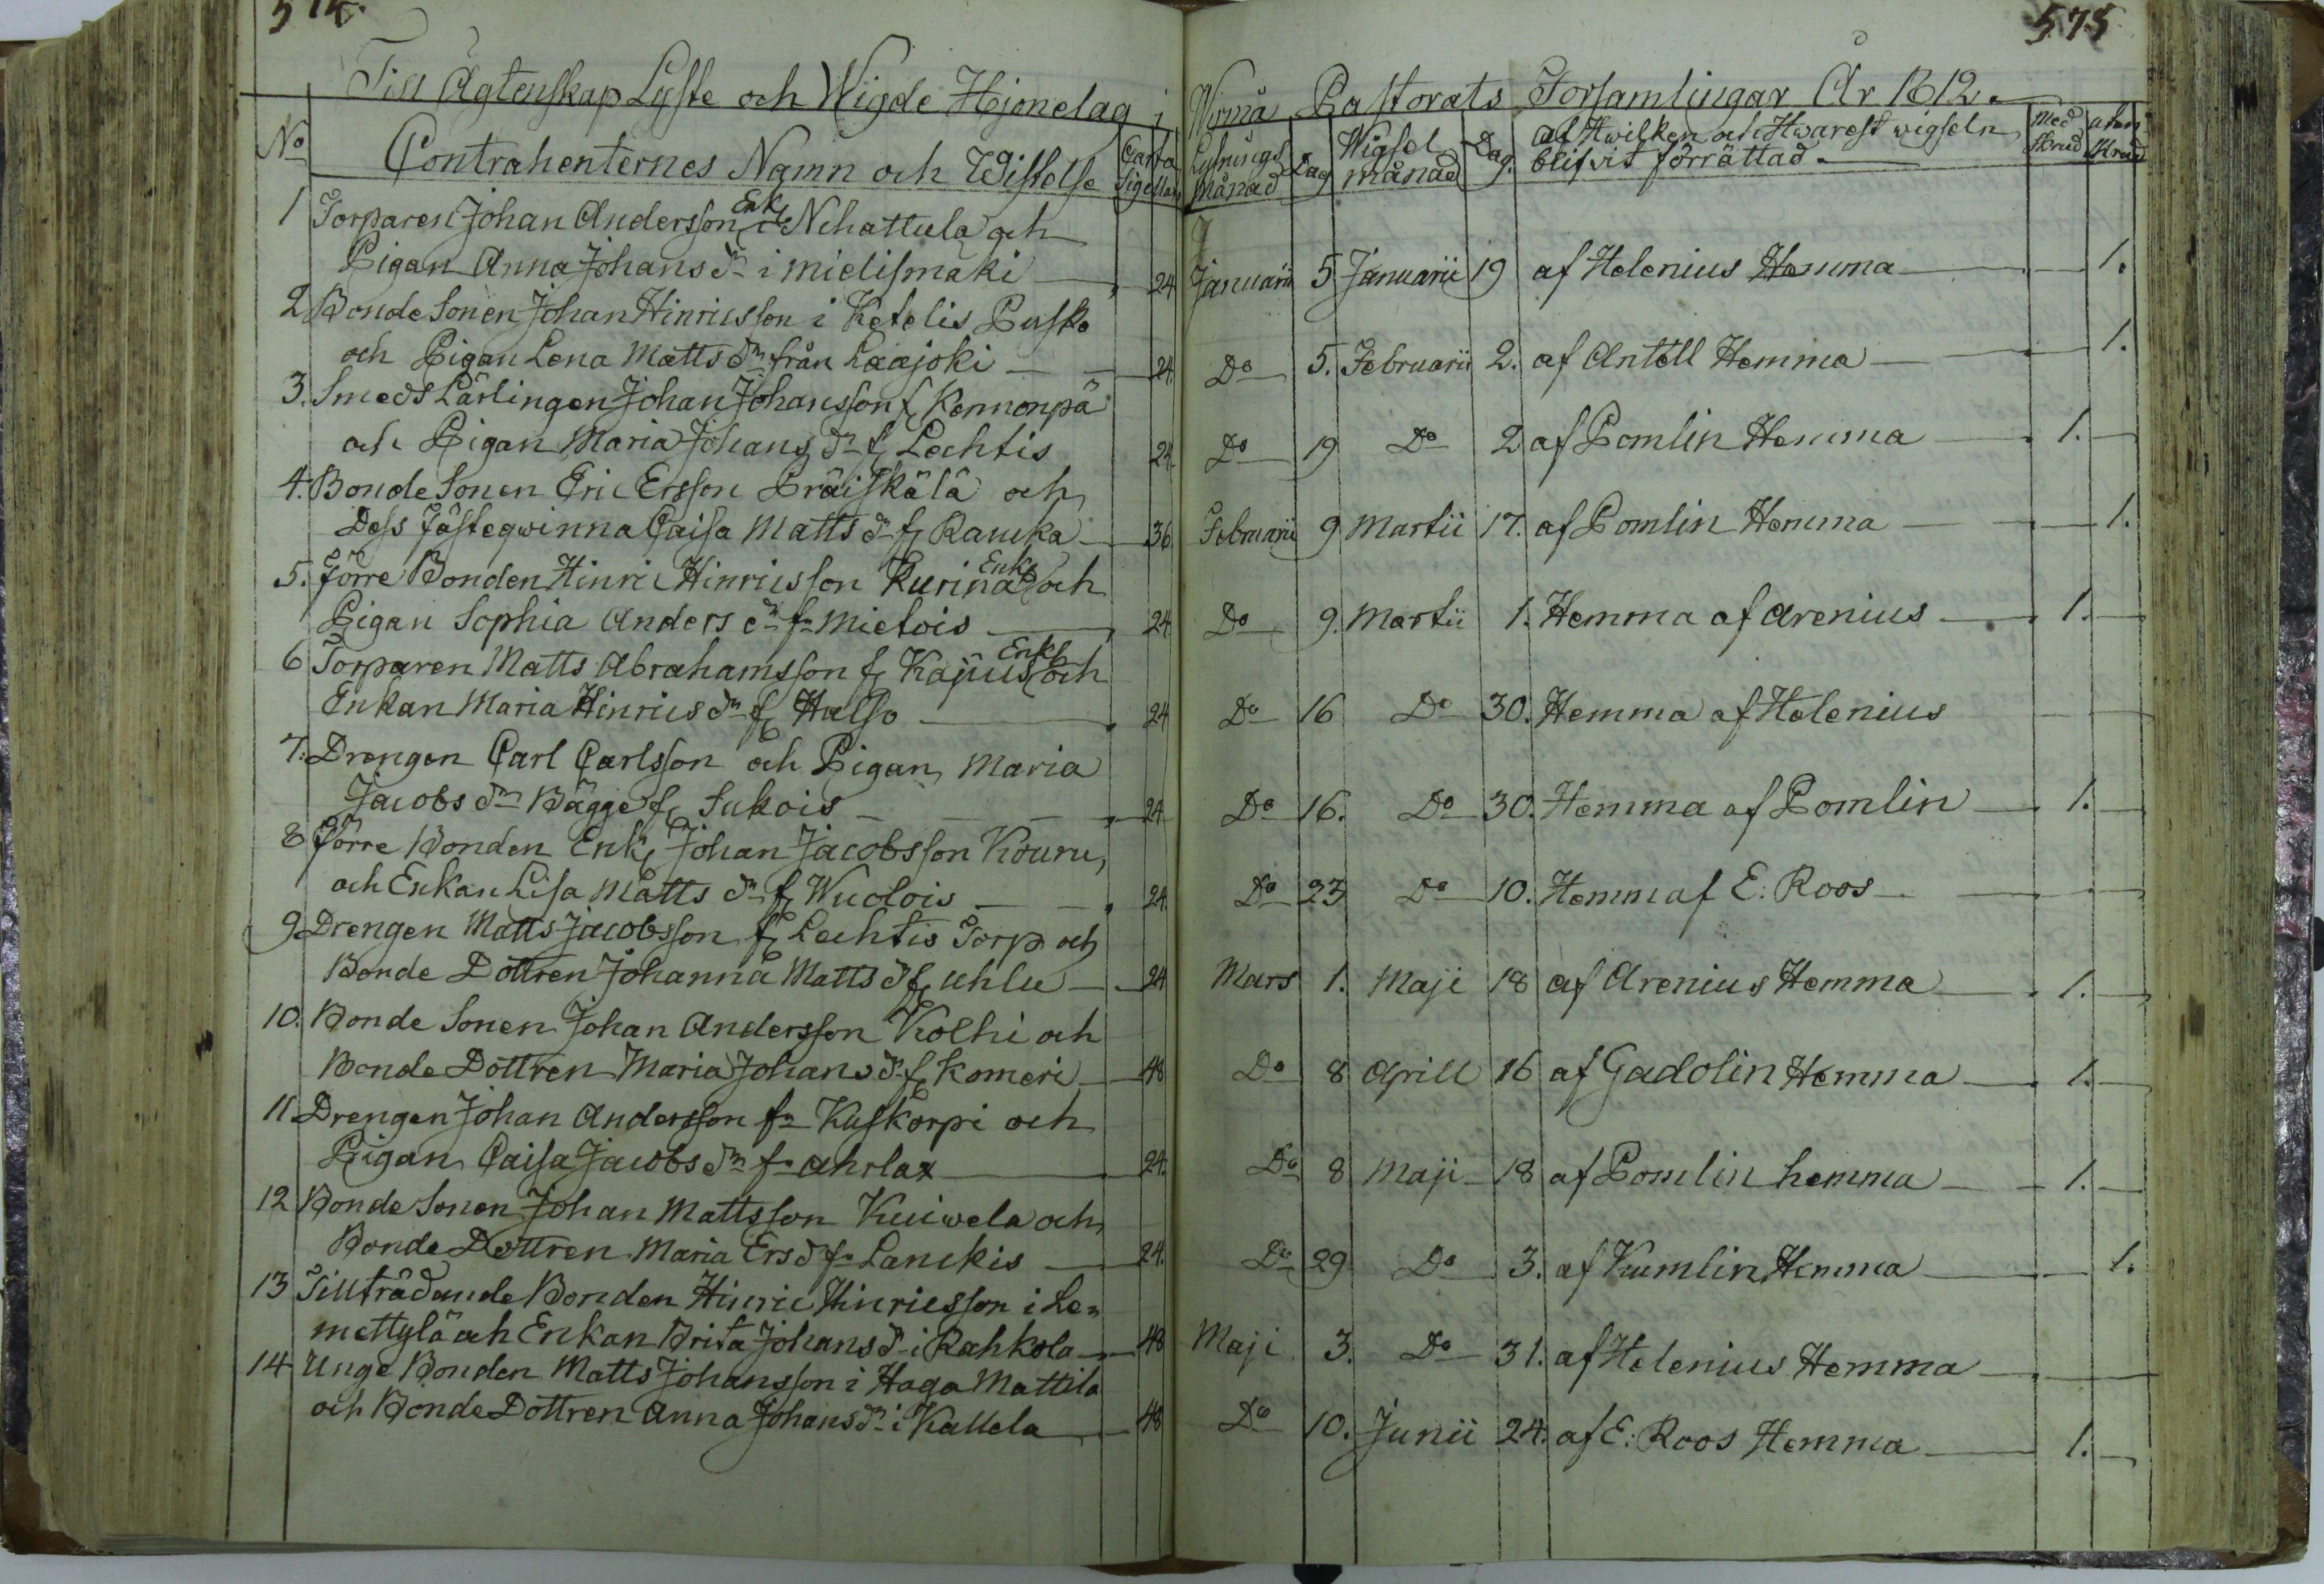 574.
Till Ägtenskap Lyste och Wigde Hjonelag i
No Contrahenternes Namn och Wistelse Carta Sigellata
1 Torparen Johan Andersson Enkl i Nihattula och
Pigan Anna Johans dr i Mielismäki 24
2 Bonde Sonen Johan Hinricsson i Ketelis Pusko
och Pigan Lena Matts dr från Laajoki 24.
3. Smeds Lärlingen Johan Johansson f Kennonpä
och Pigan Maria Johans dr f Lechtis 24.
4. Bonde Sonen Eric Ersson Präiskälä och
Dess Fästeqwinna Caisa Matts dr f Raucka 36
5. förre Bonden Hinric Hinricsson Kurina Enkl och
Pigan Sophia Anders dr fr Mietois 24
6 Torparen Matts Abrahamsson f Kajuus Enkl och
Enkan Maria Hinrics dr f Halso 24
7. Drengen Carl Carlsson och Pigan Maria
Jacobs dr Bägge f Sukois 24
8 förre Bonden Enkl Johan Jacobsson Kouru,
och Enkan Lisa Matts dr f Wuolois 24.
9. Drengen Matts Jacobsson f Lechtis Torp och
Bonde Dottren Johanna Matts d f Uhlu 24
10. Bonde Sonen Johan Andersson Kolhi och
Bonde Dottren Maria Johans d f Komeri 48
11 Drengen Johan Andersson fr Kaskorpi och
Pigan Caisa Jacobs dr fr Ahrlax 24.
12 Bonde Sonen Johan Mattsson Kuiwela och
Bonde Dottren Maria Ers d fr Lanckis 24.
13 Tillträdande Bonden Hinric Hinricsson i Le=
mettylä och Enkan Brita Johans d i Rahkola 48
14 Unge Bonden Matts Johansson i Haga Mattila
och Bonde Dottren Anna Johans dr i Kallela 48
575
Wirmå Pastorats Forsamlingar År 1812.
Lysnings Månad Dag Wigsel månad Dag. Af Hwilken och Hwarest wigseln blifvit förrättad. Med Skrud utan Skrud
Januarii 5 Januarii 19 af Helenius Hemma 1.
Do 5. Februarii 2. af Antell Hemma 1.
Do 19 Do 2 af Pomlin Hemma 1.
Februarii 9 Martii 17. af Pomlin Hemma 1.
Do 9. Martii 1. Hemma af Arenius 1.
Do 16 Do 30. Hemma af Helenius
Do 16. Do 30. Hemma af Pomlin 1.
Do 23 Do 10. Hemm af E: Roos
Mars 1. Maji 18 af Arenius Hemma 1.
Do 8 Aprill 16 af Gadolin Hemma 1.
Do 8 Maji 18 af Pomlin hemma 1.
Do 29 Do 3. af Kumlin Hemma 1.
Maji 3. Do 31. af Helenius Hemma
Do 10. Junii 24. af E: Roos Hemma 1.